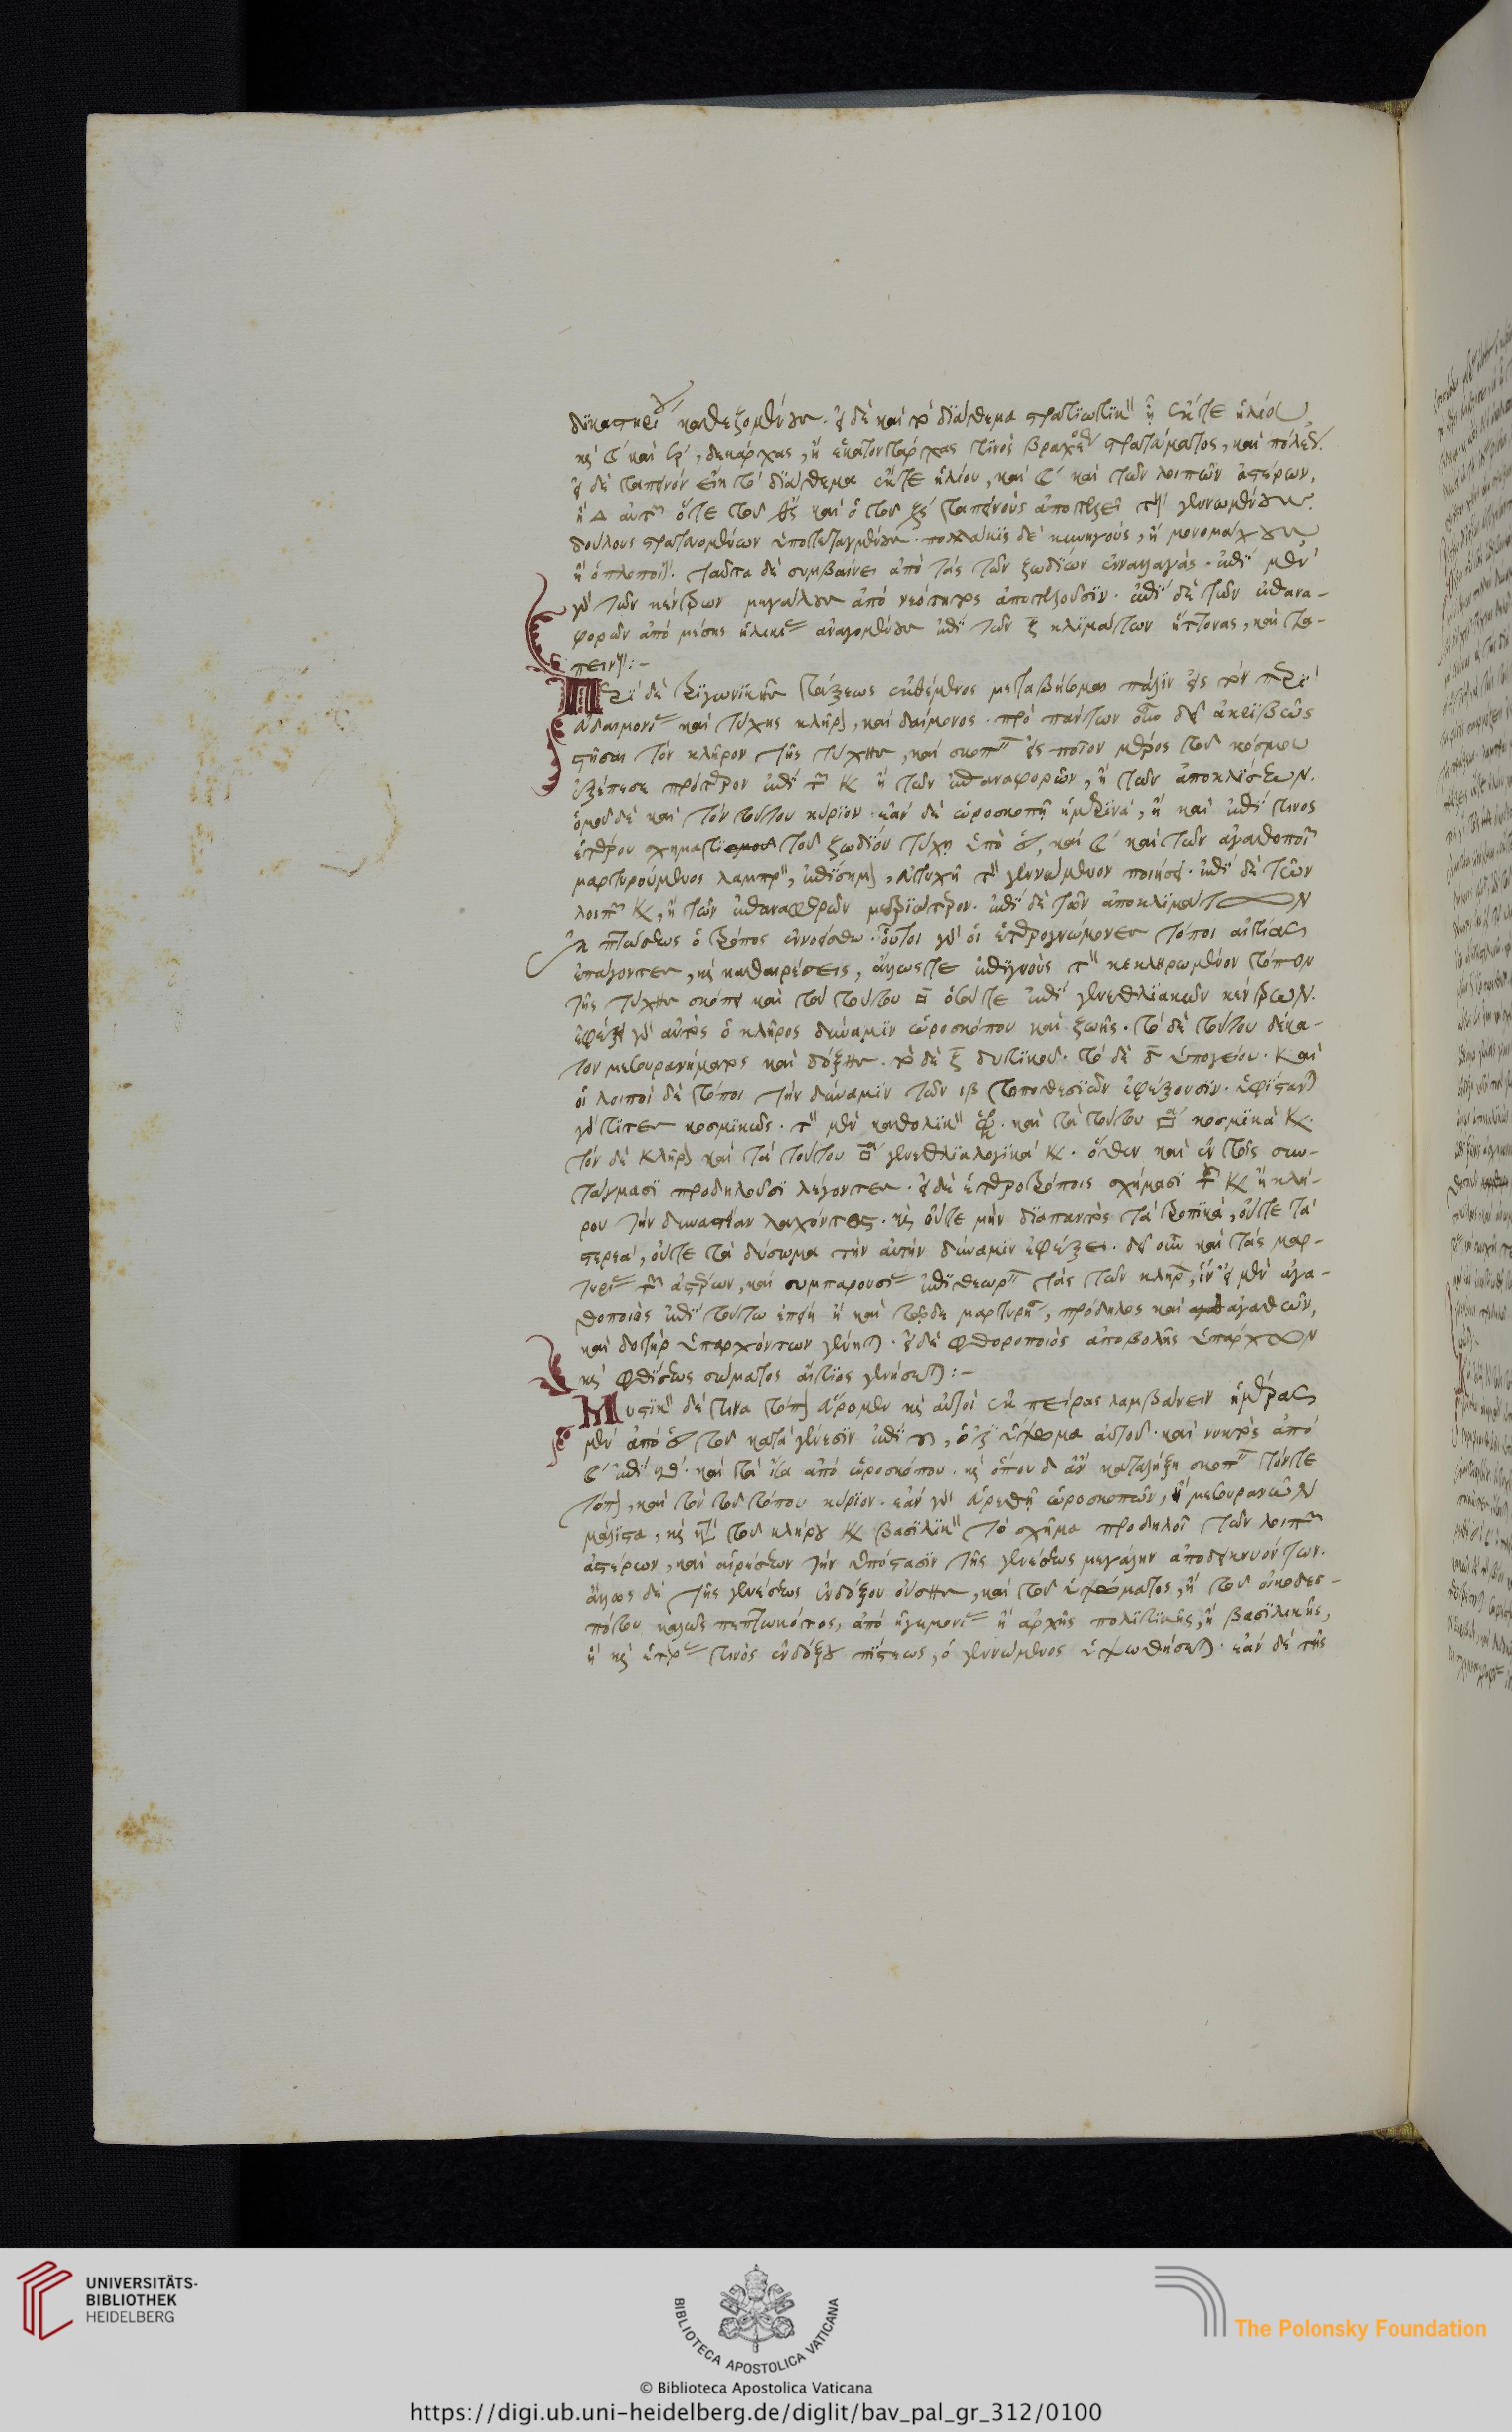 δικαστηρίων καθεζομένους. εἰ δὲ καὶ τὸ διάθεμα στρατιωτικὸν ᾖ ἔκ τε ἡλίου,
καὶ ☾ καὶ , δεκάρχας, ἢ ἑκατοντάρχας τινὸς βραχέος στρατεύματος, καὶ πόλεων.
εἰ δὲ ταπεινὸν εἴη τὸ διάθεμα ἔκ τε ἡλίου, καὶ ☾ καὶ τῶν λοιπῶν ἀστέρων,
ἢ △ αὐτῶν ὅ τε τοῦ καὶ ὁ τοῦ ταπεινοὺς ἀποτελέσει τοὺς γεννωμένους
δούλους στρατευομένων ὑποτεταγμένους. πολλάκις δὲ κυνηγούς, ἢ μονομάχους,
ἢ ὁπλοποιούς. ταῦτα δὲ συμβαίνει ἀπὸ τὰς τῶν ζωδίων ἐναλλαγάς. ἐπὶ μὲν
γὰρ τῶν κέντρων μεγάλους ἀπὸ νεότητος ἀποτελοῦσιν. ἐπὶ δὲ τῶν ἐπανα-
φορῶν ἀπὸ μέσης ἡλικίας ἀναγομένους ἐπὶ τῶν ξ κλιμάτων ἥττονας, καὶ τα-
πεινούς:-
Περὶ δὲ τριγωνικῆς τάξεως ἐκθέμενος μεταβήσομαι πάλιν εἰς τὸν περὶ
εὐδαιμονίας καὶ τύχης κλῆρον, καὶ δαίμονος. πρὸ πάντων οὖν δεῖ ἀκριβῶς
στῆσαι τὸν κλῆρον τῆς τύχης, καὶ σκοπεῖν εἰς ποῖον μέρος τοῦ κόσμου
ἐξέπεσε πρότερον ἐπὶ τῶν Κ ἢ τῶν ἐπαναφορῶν, ἢ τῶν ἀποκλίσεων.
ὁμοῦ δὲ καὶ τὸν τούτου κύριον. ἐὰν δὲ ὡροσκοπῇ ἡμερινά, ἢ καὶ ἐπί τινος
ἑτέρου σχηματισμοῦ τοῦ ζωδίου τύχῃ ὑπὸ ☉, καὶ ☾ καὶ τῶν ἀγαθοποιῶν
μαρτυρούμενος λαμπρὸν, ἐπίσημον, εὐτυχῆ τὸν γεννώμενον ποιήσει. ἐπὶ δὲ τῶν
λοιπῶν Κ, ἢ τῶν ἐπαναφορῶν μετριώτερον. ἐπὶ δὲ τῶν ἀποκλιμάτων
ἐκπτώσεως ὁ τρόπος ἐννοείσθω. οὗτοι γὰρ οἱ ἑτερογνώμονες τόποι αἰτίας
ἐπάγοντες, καὶ καθαιρέσεις, ἄλλως τε ἐπιγνοὺς τὸν κεκληρωμένον τόπον
τῆς τύχης σκόπει καὶ τοῦ τούτου □ ὡσεί τε ἐπὶ γενεθλιακῶν κέντρων.
ἐφέξει γὰρ αὐτὸς ὁ κλῆρος δύναμιν ὡροσκόπου καὶ ζωῆς. τὸ δὲ τούτου δέκα-
τον μεσουρανήματος καὶ δόξης. τὸ δὲ ζ δυτικοῦ. τὸ δὲ δ ὑπογείου. καὶ
οἱ λοιποὶ δὲ τόποι τὴν δύναμιν τῶν ιβ τοποθεσιῶν ἐφέξουσιν. ἐφίστανται
γάρ τινες κοσμικῶς. τὸν μὲν καθολικὸν καὶ τὰ τούτου □ κοσμικὰ Κ.
τὸν δὲ κλῆρον καὶ τὰ τούτου □ γενεθλιαλογικὰ Κ. ὅθεν καὶ ἐν τοῖς συν-
τάγμασι προδηλοῦσι λέγοντες. εἰ δὲ ἑτεροτρόποις σχήμασι τῶν Κ ἢ κλή-
ρου τὴν δυναστείαν λαχόντες. καὶ οὔτε μὴν διαπαντὸς τὰ τροπικὰ, οὔτε τὰ
στερεὰ, οὔτε τὰ δύσωμα τὴν αὐτὴν δύναμιν ἐφέξει. δεῖ οὖν καὶ τὰς μαρ-
τυρίας τῶν ἀστέρων, καὶ συμπαρουσίας ἐπιθεωρεῖν τὰς τῶν κλήρων, ἵν' εἰ μὲν ἀγα-
θοποιὸς ἐπὶ τούτῳ ἐπῇ ἢ καὶ τῷδε μαρτυρήσῃ, πρόδηλος καὶ ἀγαθῶν,
καὶ δοτὴρ ὑπαρχόντων γένηται. εἰ δὲ φθοροποιὸς ἀποβολῆς ὑπαρχόντων
καὶ φθίσεως σώματος αἴτιος γενήσεται:-
Μυστικὸν δέ τινα τόπον εὕρομεν καὶ αὐτοὶ ἐκ πείρας λαμβάνειν ἡμέρας
μὲν ἀπὸ ☉ τοῦ κατὰ γένεσιν ἐπὶ ♈, ὅ ἐστι ὕψωμα αὐτοῦ. καὶ νυκτὸς ἀπὸ
☾ ἐπὶ ♉. καὶ τὰ ἴσα ἀπὸ ὡροσκόπου. καὶ ὅπου δ' ἂν καταλήξῃ σκοπεῖν τόν τε
τόπον, καὶ τὸν τοῦ τόπου κύριον. ἐὰν γὰρ εὑρεθῇ ὡροσκοπῶν, ἢ μεσουρανῶν
μάλιστα, καὶ τοῦ κλήρου Κ βασιλικὸν τὸ σχῆμα προδηλοῖ τῶν λοιπῶν
ἀστέρων, καὶ αἱρέσεων τὴν ὑπόστασιν τῆς γενέσεως μεγάλην ἀποδεικνυόντων.
ἄλλως δὲ τῆς γενέσεως ἐνδόξου οὔσης, καὶ τοῦ ὑψώματος, ἢ τοῦ οἰκοδεσ-
πότου καλῶς πεπτωκότος, ἀπὸ ἡγεμονίας ἢ ἀρχῆς πολιτικῆς, ἢ βασιλικῆς,
ἢ καὶ ἑτέρας τινὸς ἐνδόξου πίστεως, ὁ γεννώμενος ὑψωθήσεται. ἐὰν δὲ τῆς
UNIVERSITÄTS-
BIBLIOTHEK
HEIDELBERG
BIBLIOTECA APOSTOLICA VATICANA
The Polonsky Foundation
© Biblioteca Apostolica Vaticana
https://digi.ub.uni-heidelberg.de/diglit/bav_pal_gr_312/0100